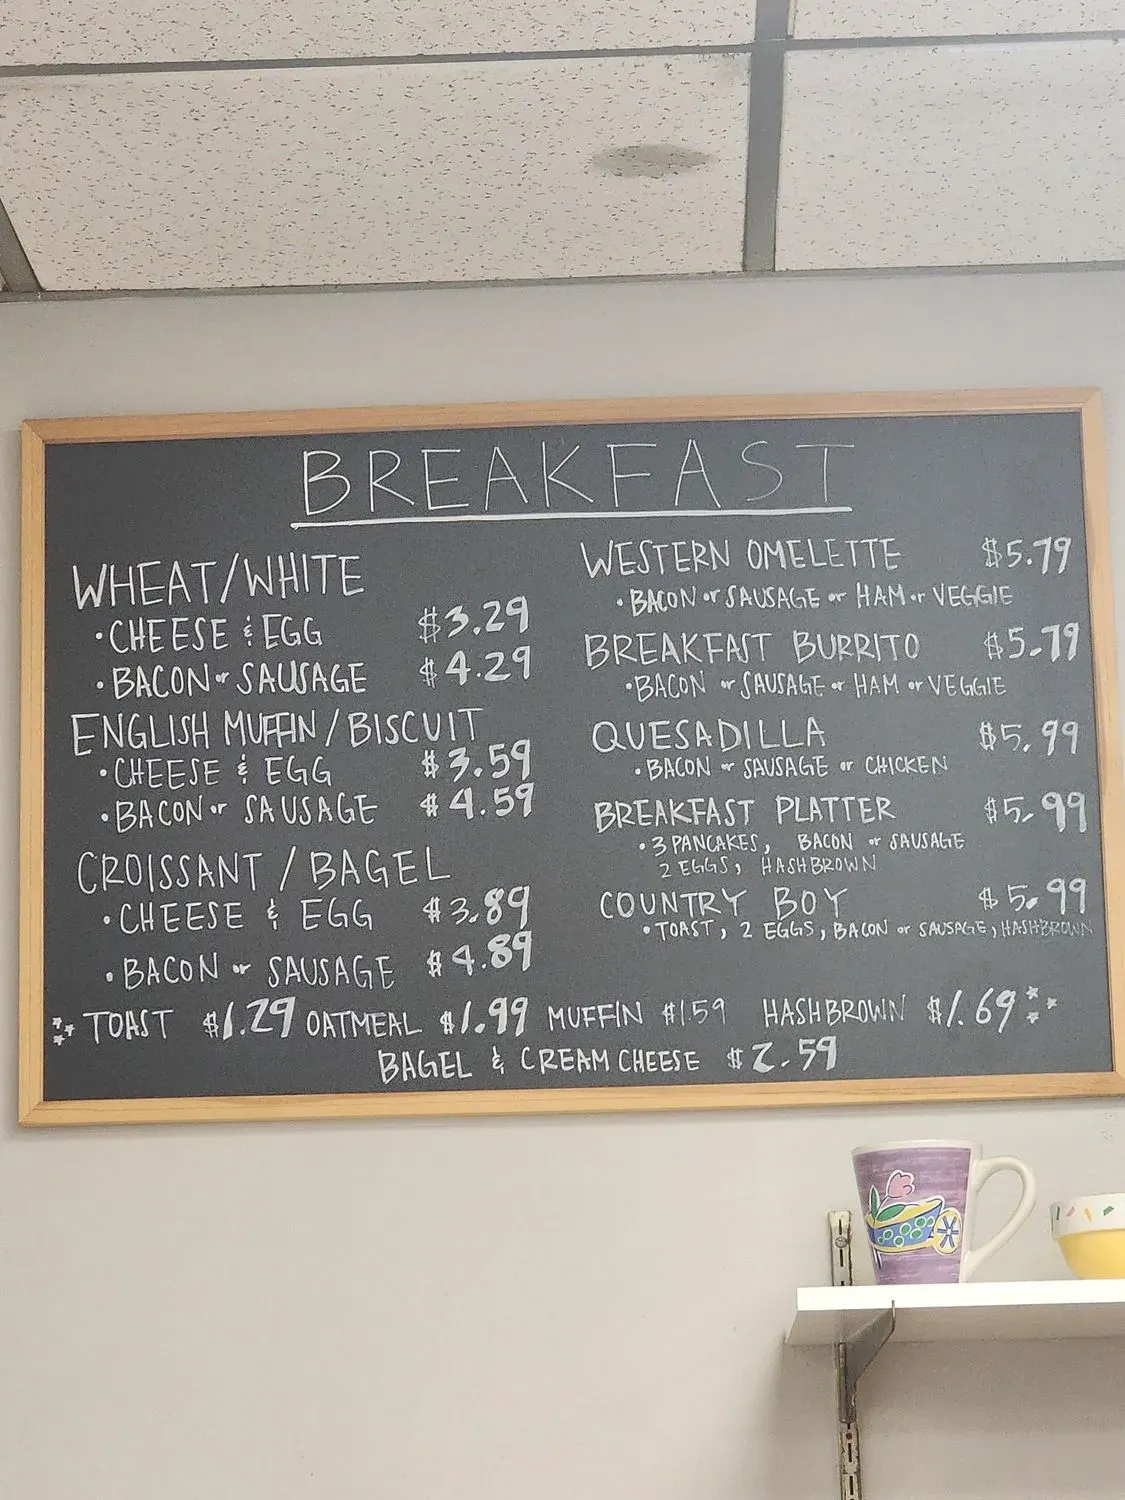 BREAKFAST
WHEAT/WHITE
• CHEESE & EGG $3.29
• BACON or SAUSAGE $4.29
ENGLISH MUFFIN / BISCUIT
• CHEESE & EGG $3.59
• BACON or SAUSAGE $4.59
CROISSANT / BAGEL
• CHEESE & EGG $3.89
• BACON or SAUSAGE $4.89
WESTERN OMELETTE $5.79
• BACON or SAUSAGE or HAM or VEGGIE
BREAKFAST BURRITO $5.79
• BACON or SAUSAGE or HAM or VEGGIE
QUESADILLA $5.99
• BACON or SAUSAGE or CHICKEN
BREAKFAST PLATTER $5.99
• 3 PANCAKES, BACON or SAUSAGE
2 EGGS, HASHBROWN
COUNTRY BOY $5.99
• TOAST, 2 EGGS, BACON or SAUSAGE, HASHBROWN
TOAST $1.29 OATMEAL $1.99 MUFFIN $1.59 HASHBROWN $1.69
BAGEL & CREAM CHEESE $2.59